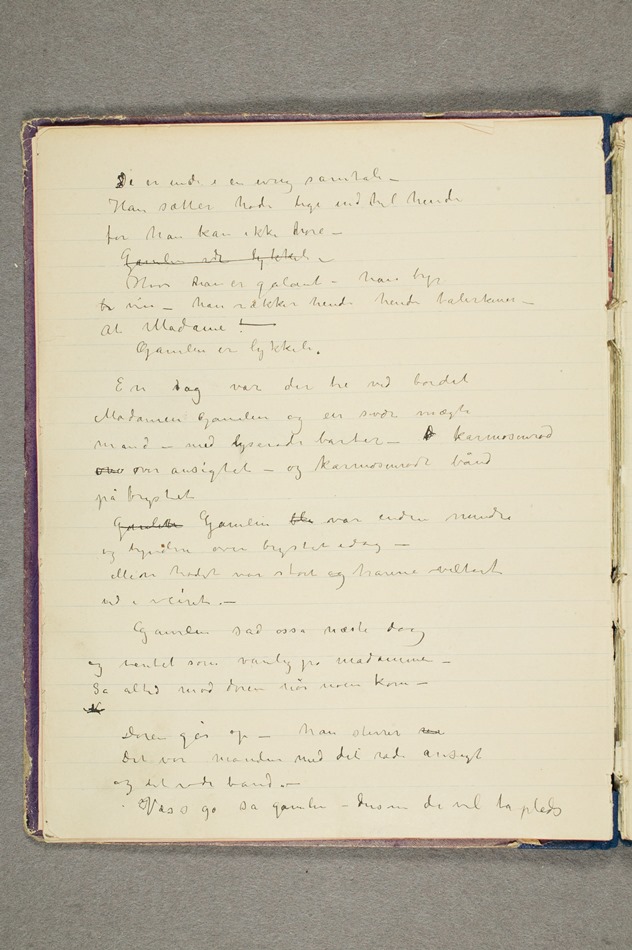 De er inde i en ivrig samtale –
Han sætter hode lige ind til hende
for han kan ikke høre –
Gamlen er lykkeli –
Hvor han er galant – han byr
vin – han rækker hende hende talerkener –
At Madame! –
Gamlen er lykkeli.
En dag var der tre ved bordet
Madamen Gamlen og en svær mægti
mand – med lyserøde barter – karmosinrød
over ansigtet – og karmosinrødt bånd
på brystet
Gamlen var endnu mindre
og tyndere over brystet idag –
Men hodet var stort og harene
ud i
Gamlen sad osså næste dag
og ventet som vanlig på madammen –
Sa altid mod døren når noen kom –
Døren går op – han stirrer
Det var manden med det røde ansigt
og det røde bånd –
Vær s go sa gamlen – dersom de vil ta plads